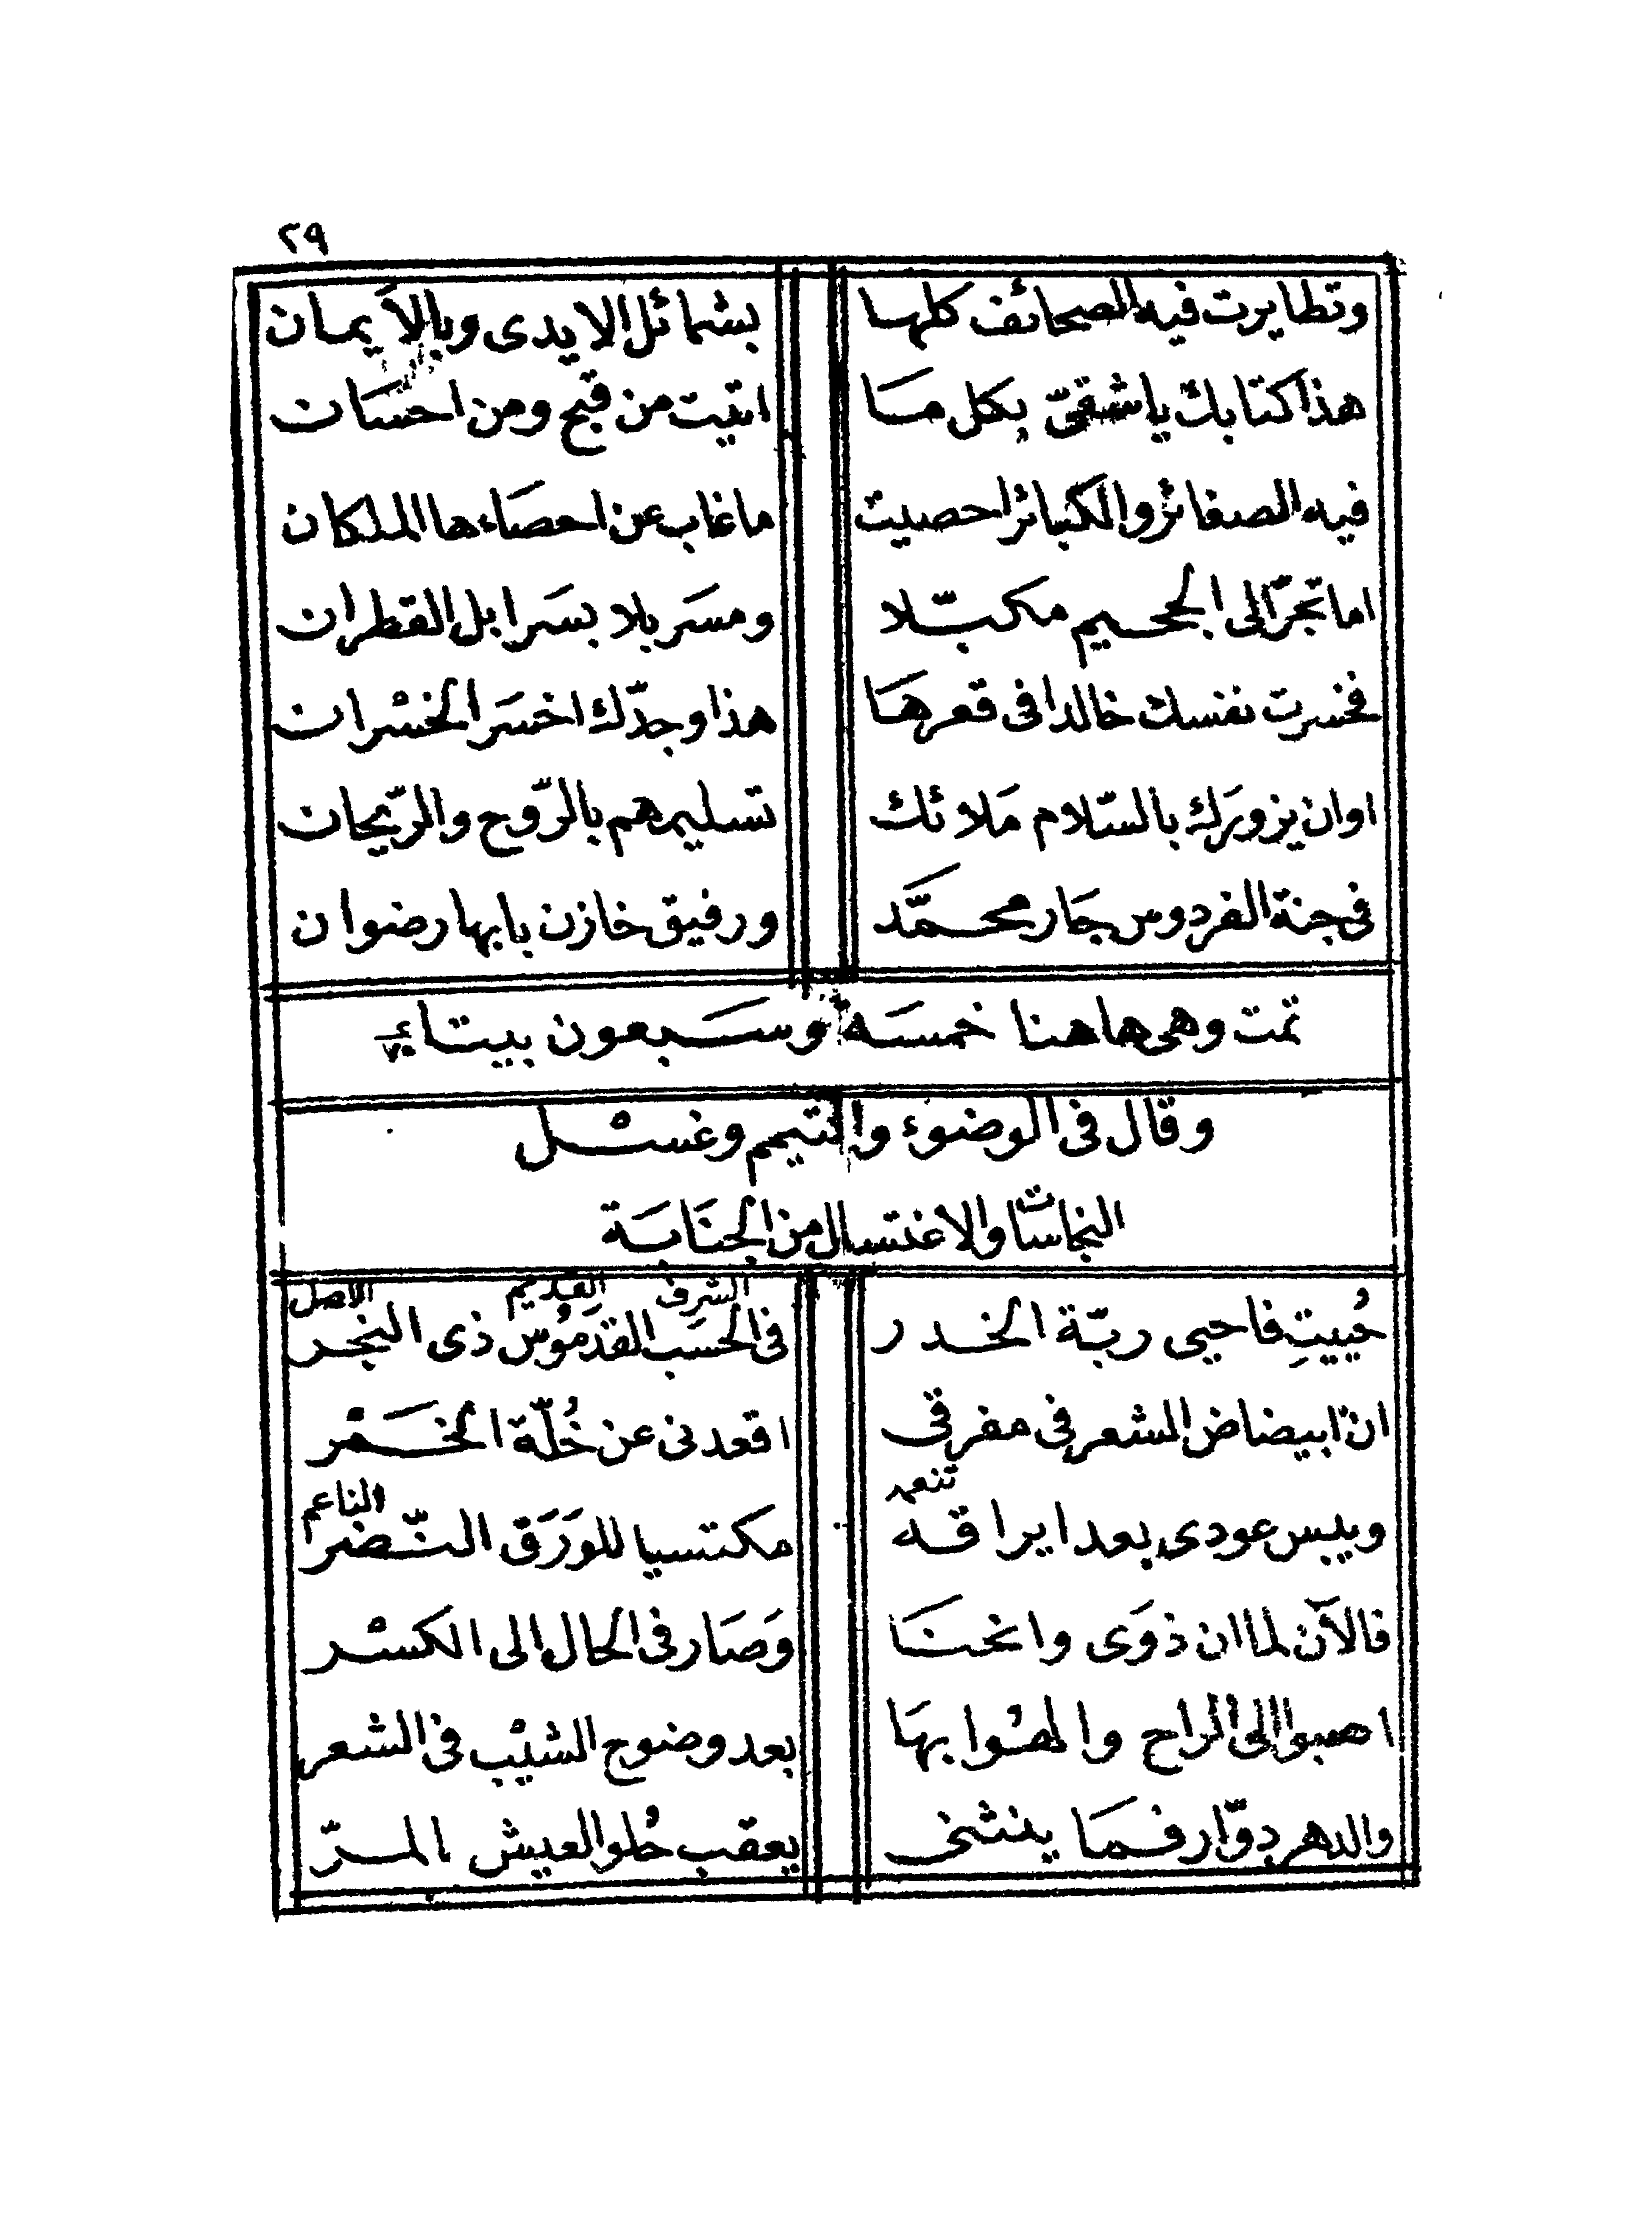 ٢٩
وتطايرت فيه الصحائف كلها بشمائل الايدى وبالأيمان
هذا كتابك يا شقىّ بكل مَا اتيت من قبح ومن احسَان
فيه الصغائر والكبائر احصيت ما غاب عن احصَاءها الملكان
اما تجرّ الى الجحيم مكبّلا ومسَربلا بسَرابل القطران
فخسرت نفسك خالدا فى قعرهَا هذا وجدّك اخسَر الخسْران
او ان يزورَك بالسّلام مَلائك تسليمهم بالرّوح والرّيحان
فى جنة الفردوس جَار محمَّد ورفيق خازن بابها رضوان
تمت وهى هاهنا خمسَة وسَبعون بيتاء ٧٥
وقال فى الوضوء والتيمم وغسْل
النجاسات والاغتسال من الجنَابَة
الشرف القديم الاصل
حُييتِ فاحيى ربّة الخدر فى الحسَب القدمُوس ذى النجر
ان ابيضاض المشعر فى مفرقى اقعدنى عن خُلّة الخَمْر
تنعمه الناعم
ويبس عودى بعد ايراقه مكتسيا للوَرَق النّضر
فالآن لما ان ذوَى وانحنَا وَصَار فى الحال الى الكسْر
اصبوا الى الراح والهُوا بهَا بعد وضوح الشيْب فى الشعر
والدهر دوّار فمَا ينثنى يعقب حُلو العيش المرّ